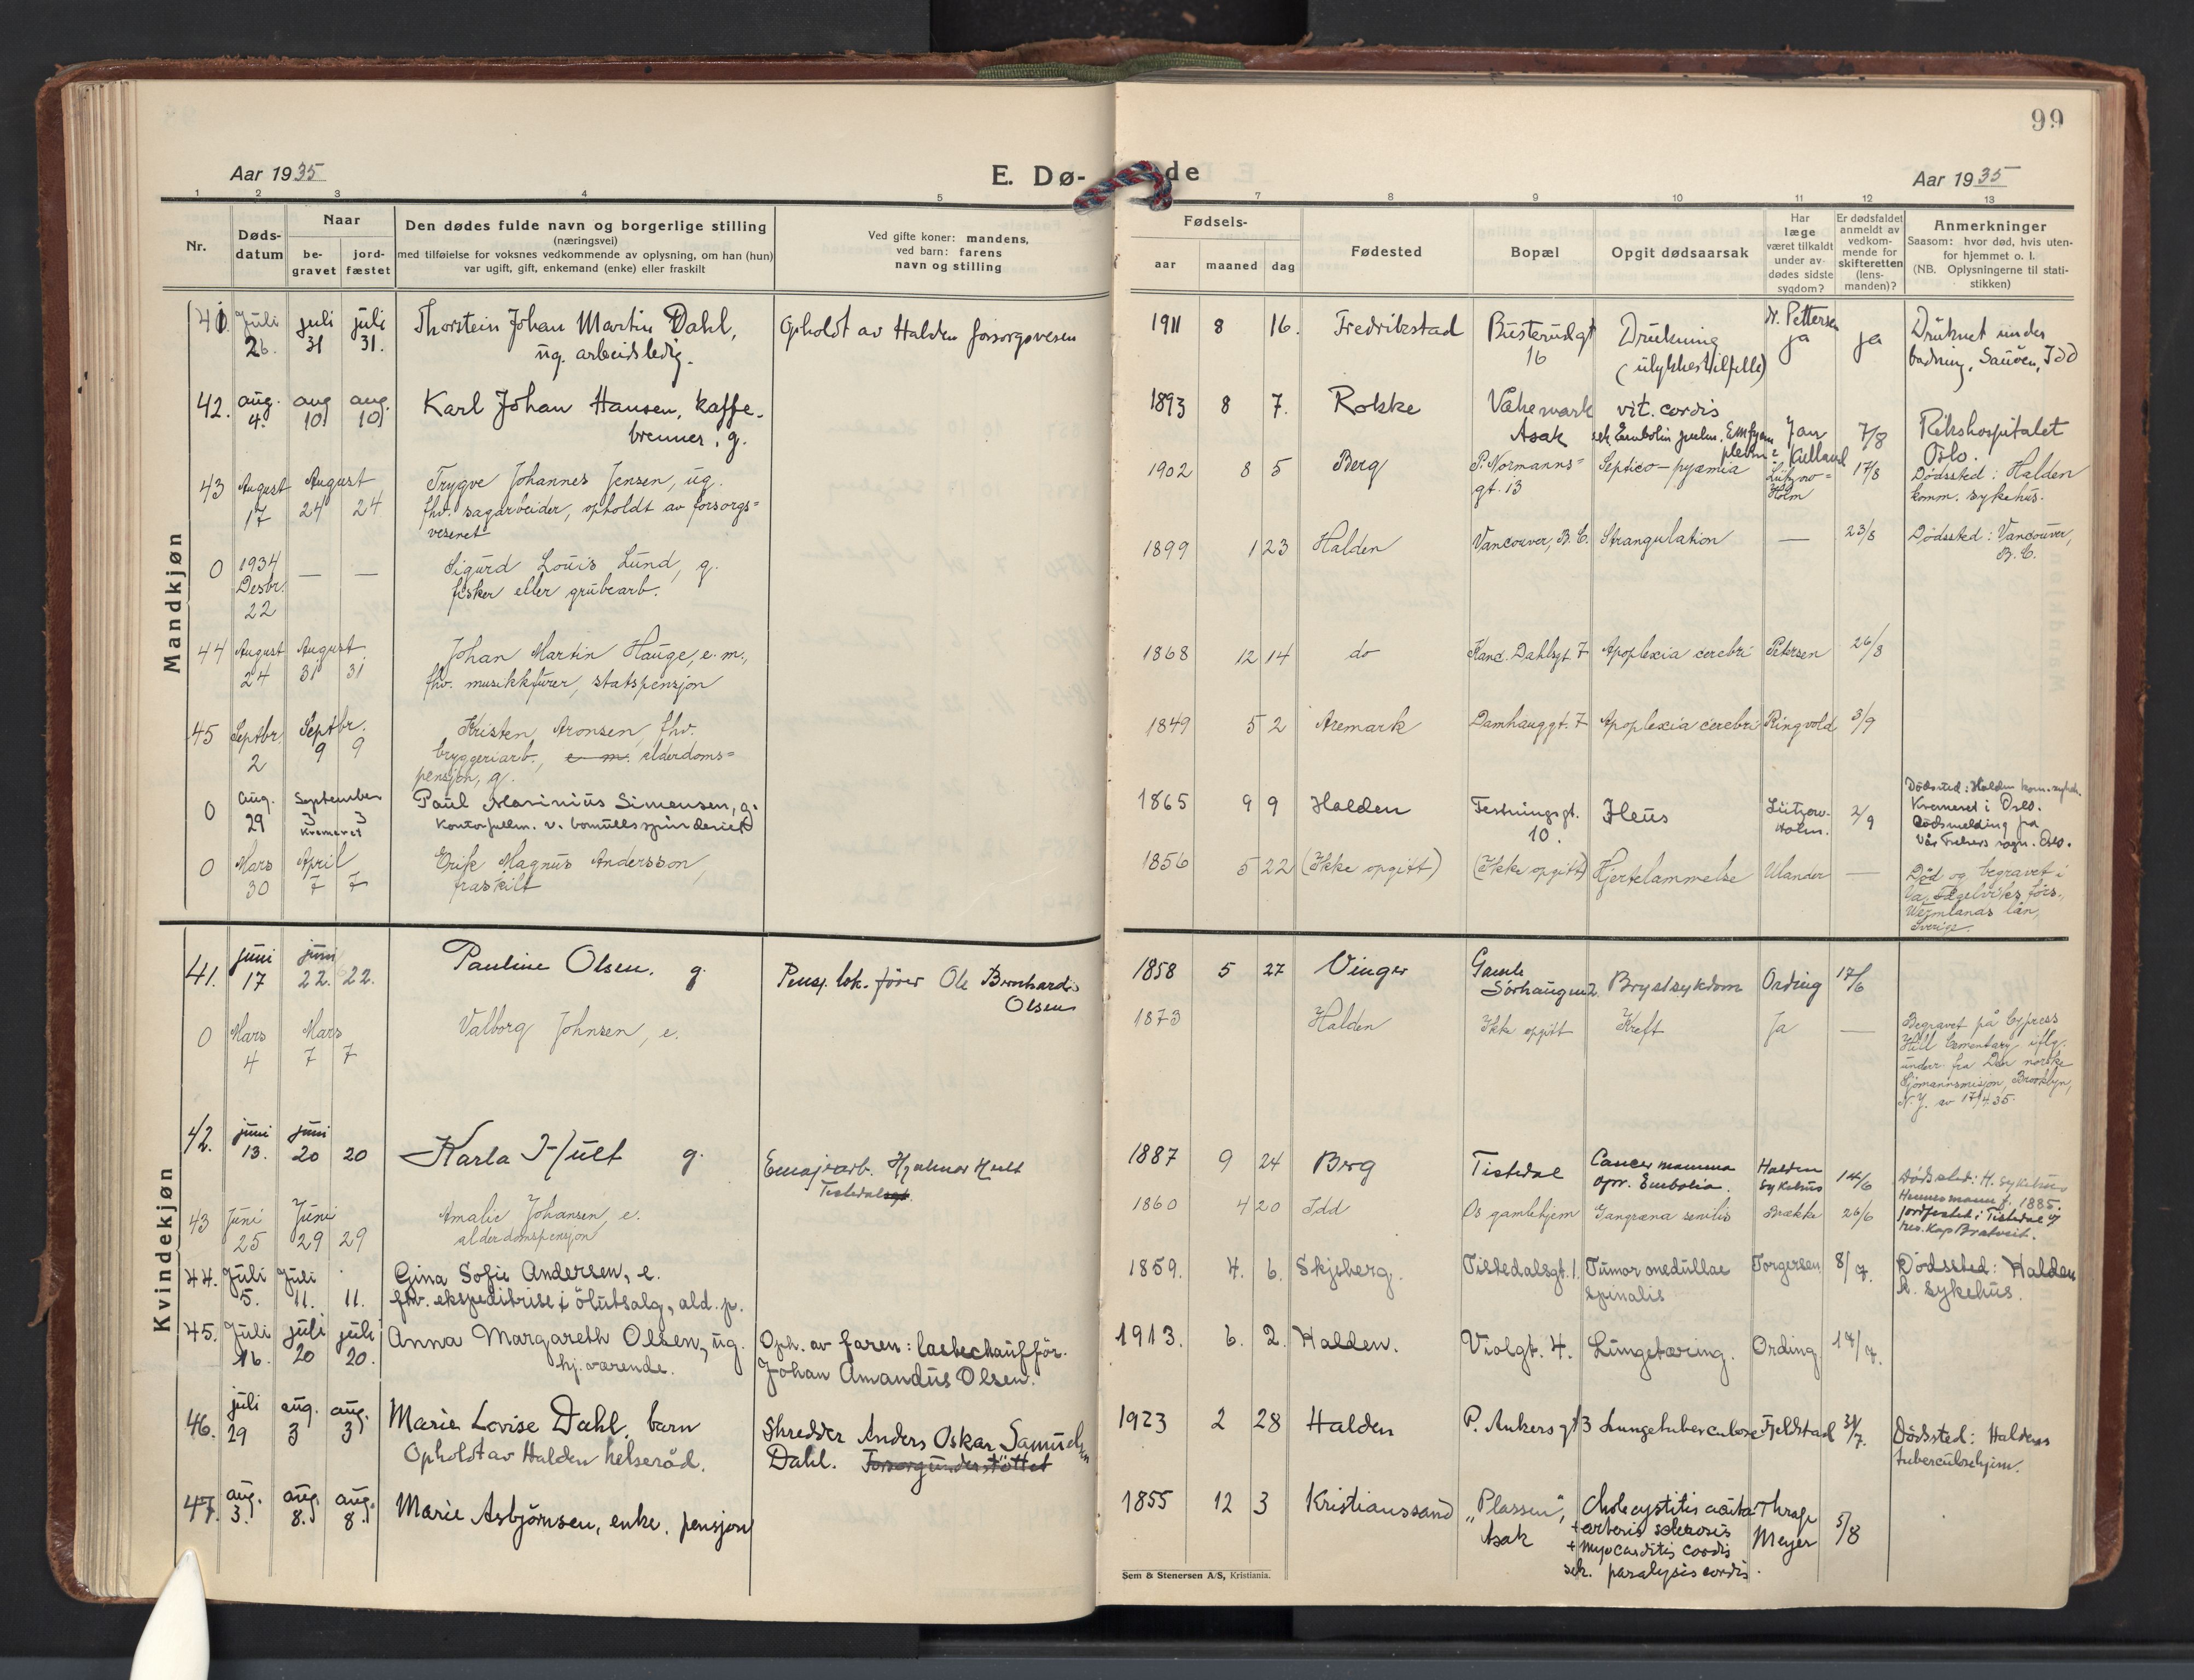 99
Aar 1935
E. Dø-
de
Aar 1935
1 2 3 4 5 7 8 9 10 11 12 13
Nr.
Døds-
datum
Naar
be-
gravet
jord-
fæstet
Den dødes fulde navn og borgerlige stilling
(næringsvei)
med tilføielse for voksnes vedkommende av oplysning, om han (hun)
var ugift, gift, enkemand (enke) eller fraskilt
Ved gifte koner: mandens,
ved barn: farens
navn og stilling
Fødsels-
aar maaned dag
Fødested
Bopæl
Opgit dødsaarsak
Har
læge
været tilkaldt
under av-
dødes sidste
sygdom?
Er dødsfaldet
anmeldt av
vedkom-
mende for
skifteretten
(lens-
manden)?
Anmerkninger
Saasom: hvor død, hvis uten-
for hjemmet o. l.
(NB. Oplysningerne til stati-
stikken)
Mandkjøn
41. Juli juli juli Thorstein Johan Martin Dahl, Opholdt av Halden forsorgsvesen 1911 8 16. Fredrikstad Busterudgt Drukning Dr. Pettersen ja Druknet under
26. 31 31. ug. arbeidsledig. 16 (ulykkestilfelle) ja badning, Sauöen, Idd
42. aug. aug aug. Karl Johan Hansen, kaffe- 1893 8 7. Rokke Vakemark vit. cordis Jan 7/8 Rikshospitalet
4. 10. 10. brenner, g. Asak sek. Embolia pulm. Empyem pleurae Kielland Oslo.
43 August August Trygve Johannes Jensen, ug. 1902 8 5 Berg P. Normanns= Septico-pyæmia Lützow= 17/8 Dødssted: Halden
17 24 24 fhv. sagarbeider, opholdt av forsorgs= gt. 13 Holm komm. sykehus.
vesenet
0 1934 — — Sigurd Louis Lund, g. 1899 1 23 Halden Vancouver, B.C. Strangulation — 23/8 Dødssted: Vancouver,
Desbr. fisker eller grubearb. B.C.
22
44 August August Johan Martin Hauge, e.m., 1868 12 14 do Kand. Dahlsgt 7 Apoplexia cerebri Petersen 26/8
24 31 31 fhv. musikkfurer, statspensjon
45 Septbr. Septbr. Kristen Aronsen, fhv. 1849 5 2 Aremark Damhauggt. 7 Apoplexia cerebri Ringvold 3/9
2 9 9 bryggeriarb., e. m. alderdoms=
pensjon, g.
0 Aug. September Paul Marinius Simensen, g. 1865 9 9 Halden Festningsgt. Ileus Lützow- 2/9 Dødssted: Halden kom. sykeh.
29 3 3 kontorfullm. v. bomullsspinderiet 10. Holm. Kremeret i Oslo.
Kremeret Dødsmelding fra
Vår Frelsers sogn. Oslo.
0 Mars April Erik Magnus Andersson, 1856 5 22 (Ikke opgitt) (Ikke opgitt) Hjertelammelse Ulander — Død og begravet i
30 7 7 fraskilt Va. Fågelviks förs.,
Wermlands län,
Sverige.
Kvindekjøn
41. juni juni Pauline Olsen. g. Pensj. lok. förer Ole Bernhard 1858 5 27 Vinger Gamle Brystsykdom Ording 17/6
17 22. 22. Olsen Sörhaugen 2.
0 Mars Mars Valborg Johnsen, e. 1873 Halden Ikke opgitt Kreft Ja — Begravet på Cypress
4 7 7 Hill Cementary iflg.
underr. fra Den norske
Sjömannsmisjon, Brooklyn,
N.Y. av 17/4 35.
42. juni juni Karla Hult g. Hjalmar Hult 1887 9 24 Berg Tistedal Cancer mamma Halden 14/6 Dödssted: H. sykehus
13. 20 20 Tistedalsgt. opr. Embolia. sykehus Hennes mann f. 1885.
jordfestet i Tistedal v/
res. kap Bratveit.
43 Juni Juni Amalie Johansen, e. 1860 4 20 Idd Os gamlehjem Gangræna senilis Brække 26/6
25 29 29 alderdomspensjon
44. Juli Juli Gina Sofie Andersen, e. 1859. 4. 6. Skjeberg. Tistedalsgt. 1. Tumor medullae Torgersen 8/7. Dödssted: Halden
5. 11. 11. fhv. ekspeditrise i ölutsalg, ald. p. spinalis k. sykehus.
45. Juli juli juli Anna Margareth Olsen, ug. Oph. av faren: lastechafför. 1913. 6. 2. Halden. Violgt. 4. Lungetæring. Ording 17/7.
16. 20 20. hj. værende. Johan Amandus Olsen.
46. juli aug. aug. Marie Lovise Dahl, barn Skredder Anders Oskar Samuelsen 1923 2 28 Halden P. Ankersgt 3 Lungetuberculose Fjeldstad 31/7. Dödssted: Haldens
29 3 3 Opholdt av Halden helseråd. Dahl. Forsorgunderstöttet tuberculosehjem.
47. aug. aug. aug. Marie Asbjörnsen, enke. pensjon 1855 12 3 Kristianssand "Plassen", Cholecystitis acuta Thrap 5/8
3. 8. 8. Asak + arterio sclerosis Meyer
+ myocarditis cordis
sek. paralysis cordis.
Sem & Stenersen A/S, Kristiania.